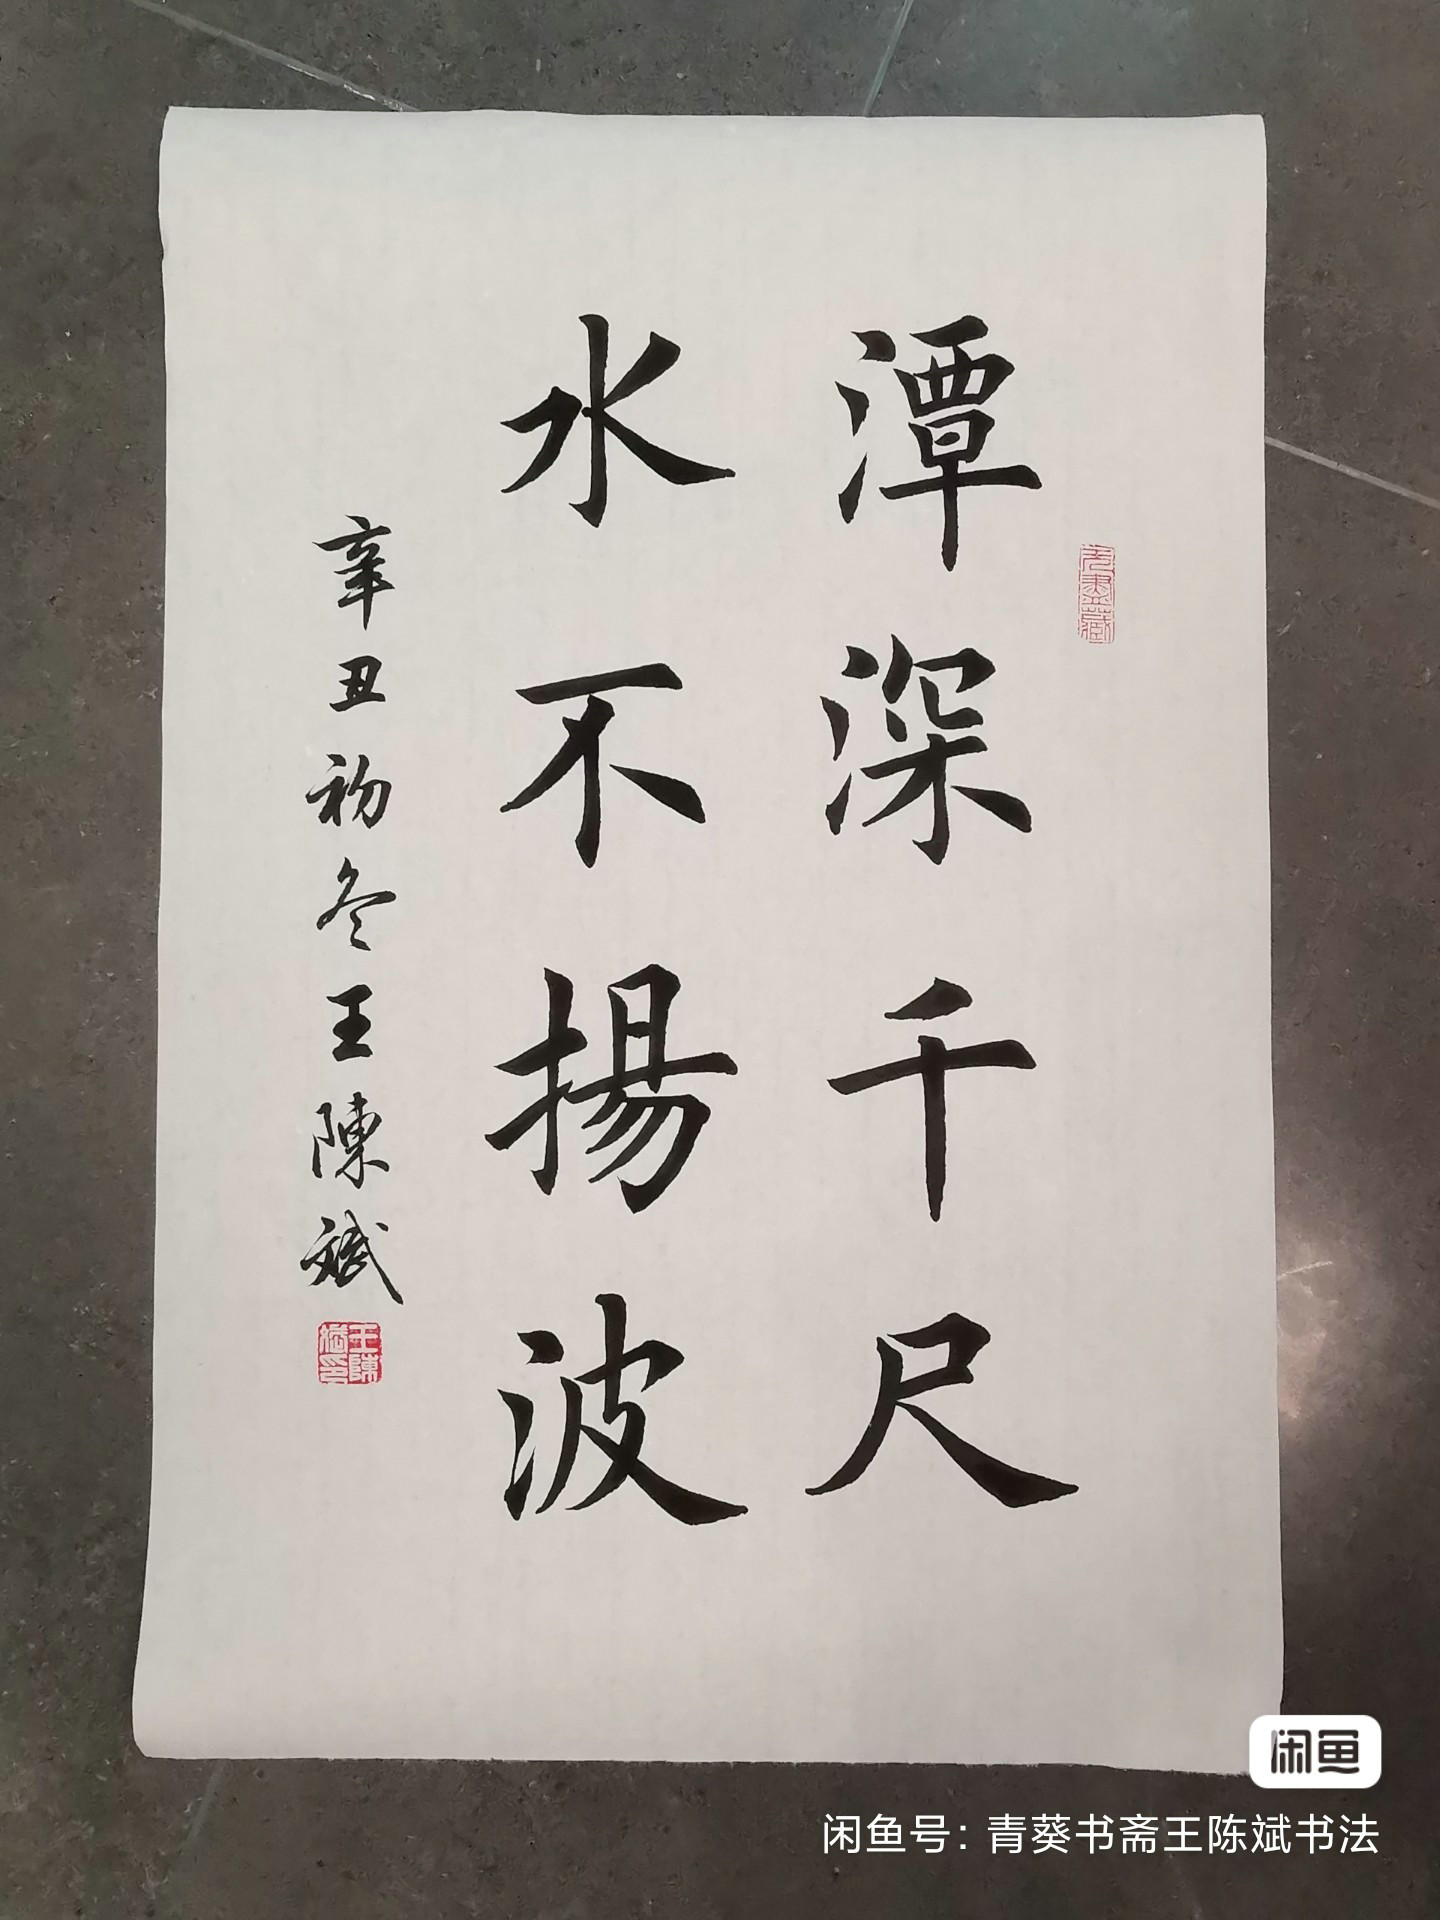 潭深千尺
水不揚波
辛丑初冬王陳斌
王陳斌印
闲鱼
闲鱼号：青葵书斋王陈斌书法